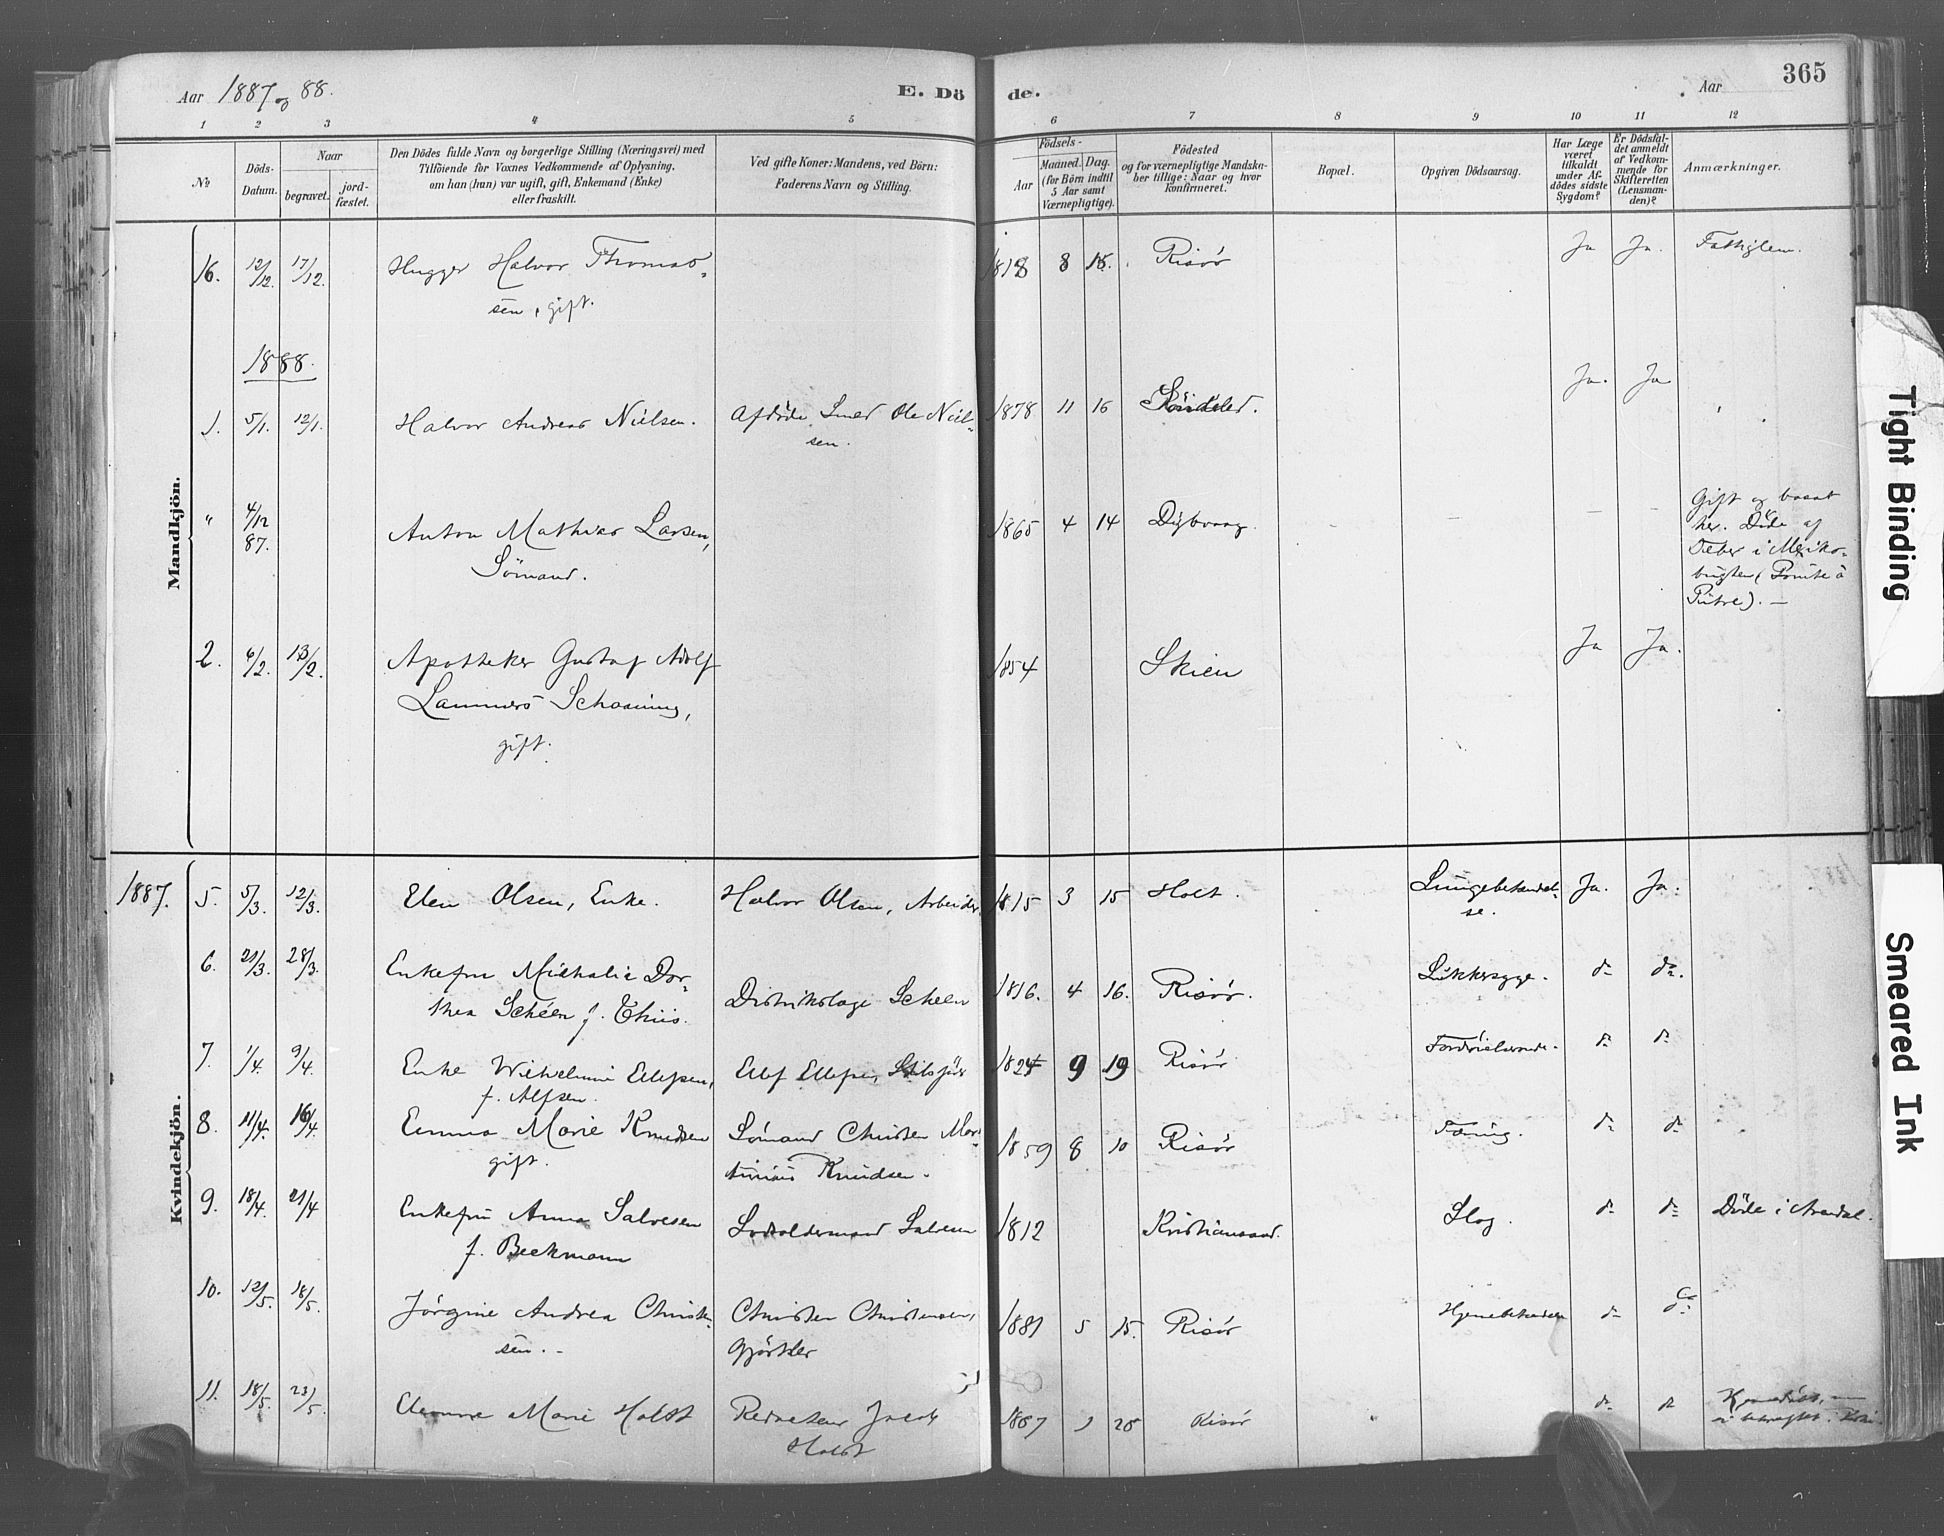 Aar 1887 og 88.
E. Dö de.
Aar
365
1 2 3 4 5 6 7 8 9 10 11 12
No
Döds-
Datum.
Naar
begravet.
jord-
fæstet.
Den Dödes fulde Navn og borgerlige Stilling (Næringsvei) med
Tilföiende for Voxnes Vedkommende af Oplysning,
om han (hun) var ugift, gift, Enkemand (Enke)
eller fraskilt.
Ved gifte Koner: Mandens, ved Börn:
Faderens Navn og Stilling.
Födsels-
Aar
Maaned. Dag.
(for Börn indtil
5 Aar samt
Værnepligtige).
Födested
og for værnepligtige Mandskaber
tillige: Naar og hvor
konfirmeret.
Bopæl.
Opgiven Dödsaarsag.
Har Læge
været
tilkaldt
under Af-
dödes sidste
Sygdom?
Er Dödsfal-
det anmeldt
af Vedkom-
mende for
Skifteretten
(Lensman-
den)?
Anmærkninger.
Mandkjön.
16. 12/12. 17/12. Hugger Halvor Thomas-
sen, gift.
1818 8 15. Risør Ja Ja. Fattiglem.
1888.
1. 5/1. 12/1. Halvor Andreas Nielsen. Afdøde Smed Ole Niel-
sen.
1878 11 16 Søndeled. Ja. Ja
" 4/12 87. Anton Mathias Larsen,
Sømand.
1865 4 14 Dybvaag. — — —
Gift og bosat
her. Døde af
Feber i Mexiko-
bugten (Pointe à
Pitre). —
2. 6/2. 13/2. Apotheker Gustaf Adolf
Lammers Schaaning,
gift.
1854 Skien Ja Ja.
Kvindekjön.
1887. 5. 5/3. 12/3. Elen Olsen, Enke. Halvor Olsen, Arbeider 1815 3 15 Holt. Lungebetændel-
se. Ja. Ja.
6. 21/3. 28/3. Enkefru Michalie Dor-
thea Schéen f. Thiis. Distriktslæge Scheen 1816. 4 16. Risør. Sukkersyge. do do.
7. 1/4. 9/4. Enke Wilhelmine Ellefsen,
f. Alfsen. Ellef Ellefsen, 1824 9 19 Risør do do
8. 11/4. 16/4. Emma Marie Knudsen
gift. Sømand Christen Mar-
tinius Knudsen. 1859 8 10 Risør Tæring. do do
9. 18/4. 21/4 Enkefru Anna Salvesen
f. Beckmann Lodsoldermand Salvesen 1812 Kristianssand. Slag. do do Døde i Arendal.
10. 12/5. 18/5. Jørgine Andrea Christen-
sen. - Christen Christensen,
Gjørtler 1881 5 15. Risør Hjernebetændelse do do
11. 18/5. 23/5. Marie Holst Redacteur Jacob
Holst 1887 1 28 Risør do do
Tight Binding
Smeared Ink